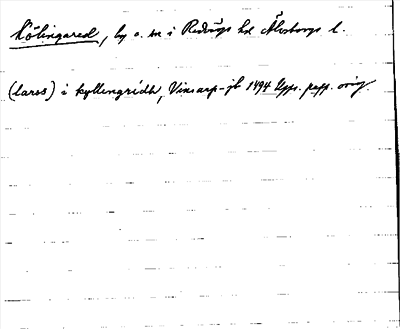 Kölingared, by o. sn i Redvägs hd Älvsborgs l.
(larss) i kyllengridh, Vinsarp-jb 1494 Upps. papp. orig.